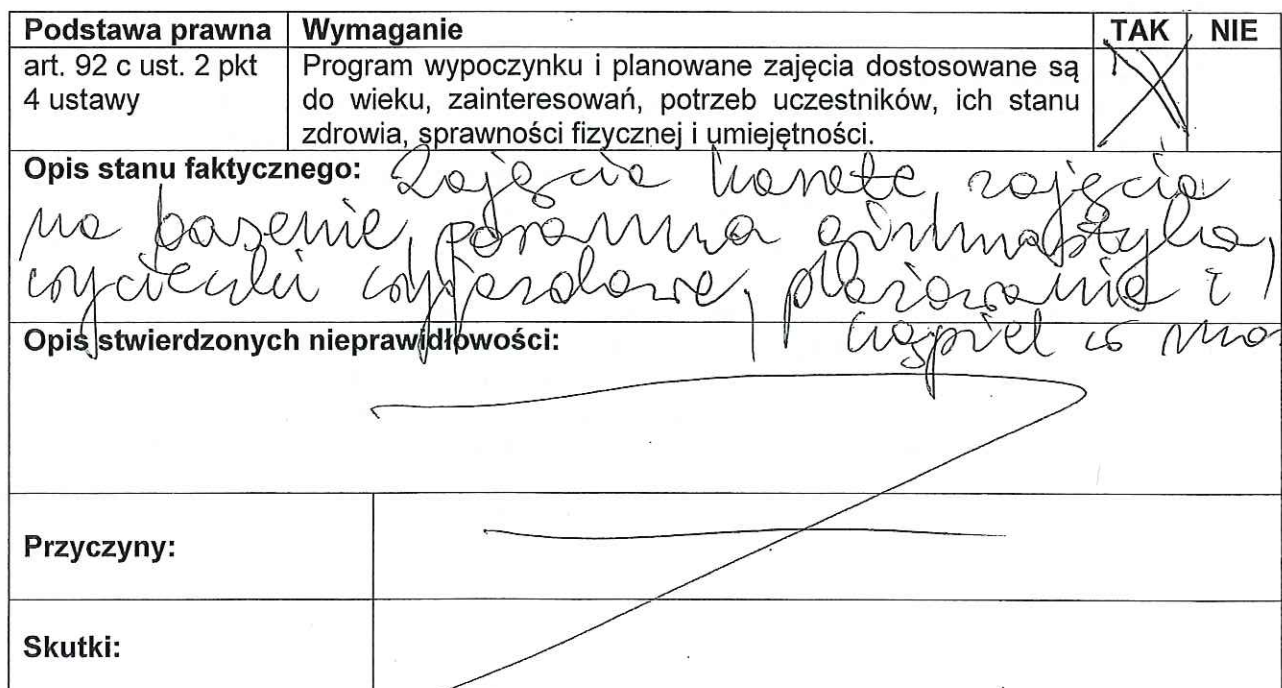 Podstawa prawna Wymaganie TAK NIE
art. 92 c ust. 2 pkt
4 ustawy
Program wypoczynku i planowane zajęcia dostosowane są
do wieku, zainteresowań, potrzeb uczestników, ich stanu
zdrowia, sprawności fizycznej i umiejętności.
Opis stanu faktycznego: Zajęcia karate, zajęcia
na basenie, poranna gimnastyka,
wycieczki wyjazdowe, plażowanie i
kąpiel w mo
Opis stwierdzonych nieprawidłowości:
Przyczyny:
Skutki: